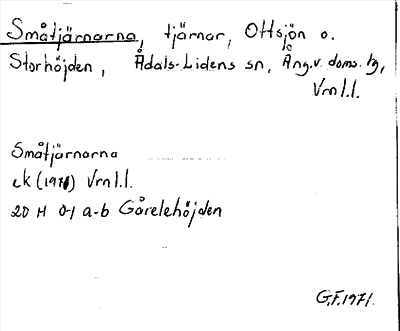 Småtjärnarna, tjärnar, Ottsjön o.
Storhöjden, Ådals-Lidens sn, Ång.v. doms. tg,
Vrnl.l.
Småtjärnarna
ek (1971) Vrnl.l.
20 H 0-1 a-b Gårelehöjden
G.F. 1971.